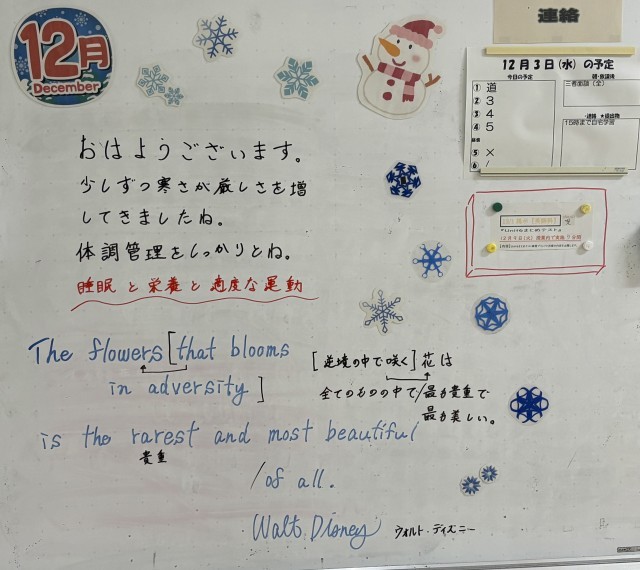 12月
December
連絡
12月3日(水)の予定
今日の予定
① 道
② 3
③ 4
④ 5
⑤ ×
⑥ /
三者面談(全)
15時まで自宅学習
おはようございます。
少しずつ寒さが厳しさを増
してきましたね。
体調管理をしっかりとね。
睡眠と栄養と適度な運動
The flowers [that blooms
in adversity]
is the rarest and most beautiful
貴重
/of all.
Walt Disney ウォルト・ディズニー
[逆境の中で咲く]花は
全てのものの中で/最も貴重で
最も美しい。